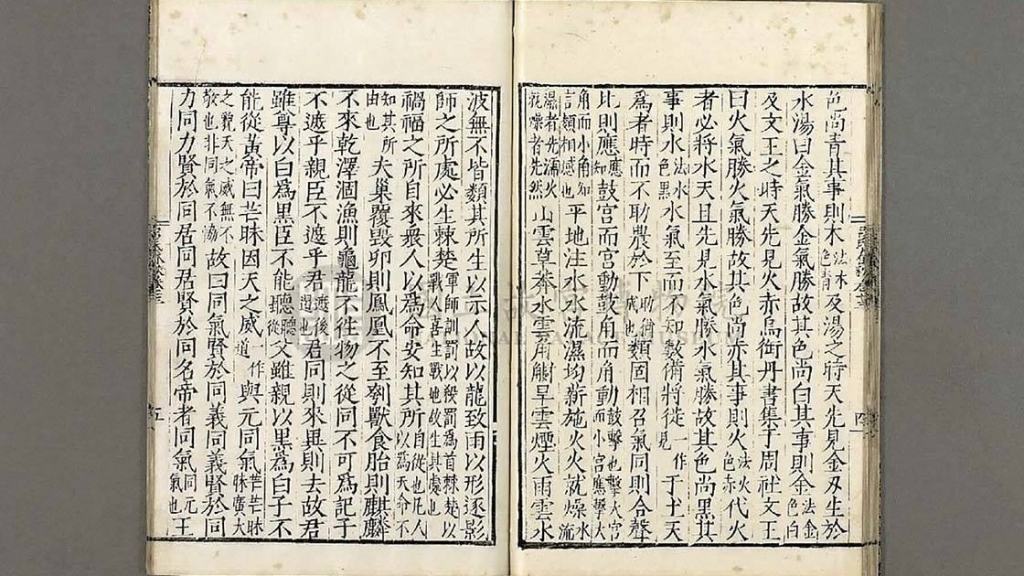 色尚青其事則木法木色青及湯之時天先見金刃生於
水湯曰金氣勝金氣勝故其色尚白其事則金法金色白
及文王之時天先見火赤烏銜丹書集于周社文王
曰火氣勝火氣勝故其色尚赤其事則火法火色赤代火
者必將水天且先見水氣勝水氣勝故其色尚黑其
事則水法水色黑水氣至而不知數術將從一作見于土天
為者時而不助農於下助猶成也類固相召氣同則合聲
比則應應知鼓宮而宮動鼓角而角動鼓擊也擊大宮而小宮應擊大
角而小角知言類相感也平地注水水流濕均薪施火火就燥水流
濕者先濡火就燥者先然山雲草莽水雲旱雲煙火雨雲水
波無不皆類其所生以示人故以龍致雨以形逐影
師之所處必生棘楚軍師訓罰以殺罰為首棘楚以戰以善生戰地故生其處也
禍福之所自來眾人以為命安知其所自從也凡人以為天命不
知其所由也夫巢覆毀卵則鳳凰不至刳獸食胎則麒麟
不來乾澤涸漁則龜龍不往物之從同不可為記子
不遮乎親臣不遮乎君遮後遏也君同則來異則去故君
雖尊以白為黑臣不能聽聽從父雖親以黑為白子不
能從黃帝曰芒昧因天之威一作道與元同氣芒芒昧昧廣大
之貌天之威無不敬也非同氣不協故曰同氣賢於同義同義賢於同
力同力賢於同居同居賢於同名帝者同氣同元氣也王
五